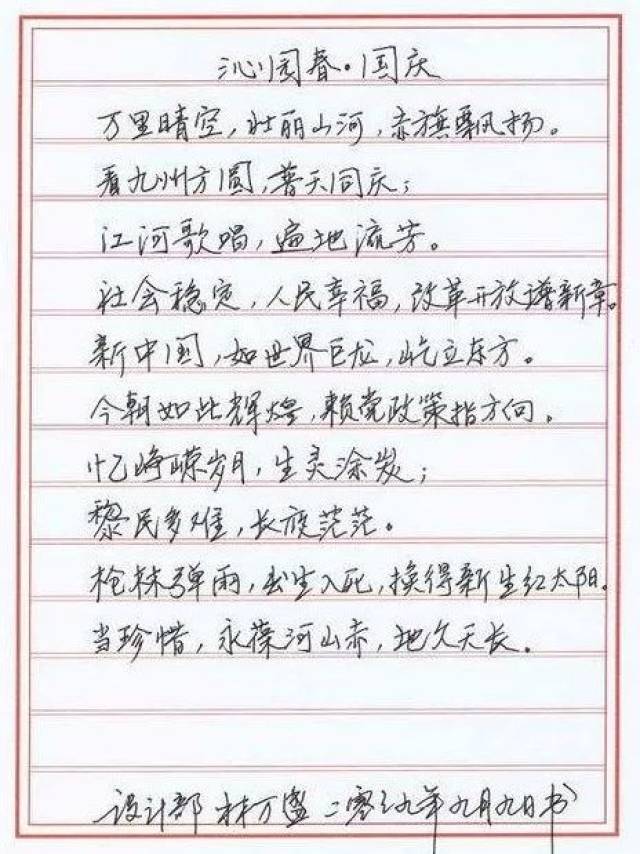 沁园春·国庆
万里晴空，壮丽山河，赤旗飘扬。
看九州方圆，普天同庆；
江河歌唱，遍地流芳。
社会稳定，人民幸福，改革开放谱新章。
新中国，如世界巨龙，屹立东方。
今朝如此辉煌，赖党政策指方向。
忆峥嵘岁月，生灵涂炭；
黎民多难，长夜茫茫。
枪林弹雨，出生入死，换得新生红太阳。
当珍惜，永葆河山赤，地久天长。
设计部 林万盛 二零一九年九月九日书